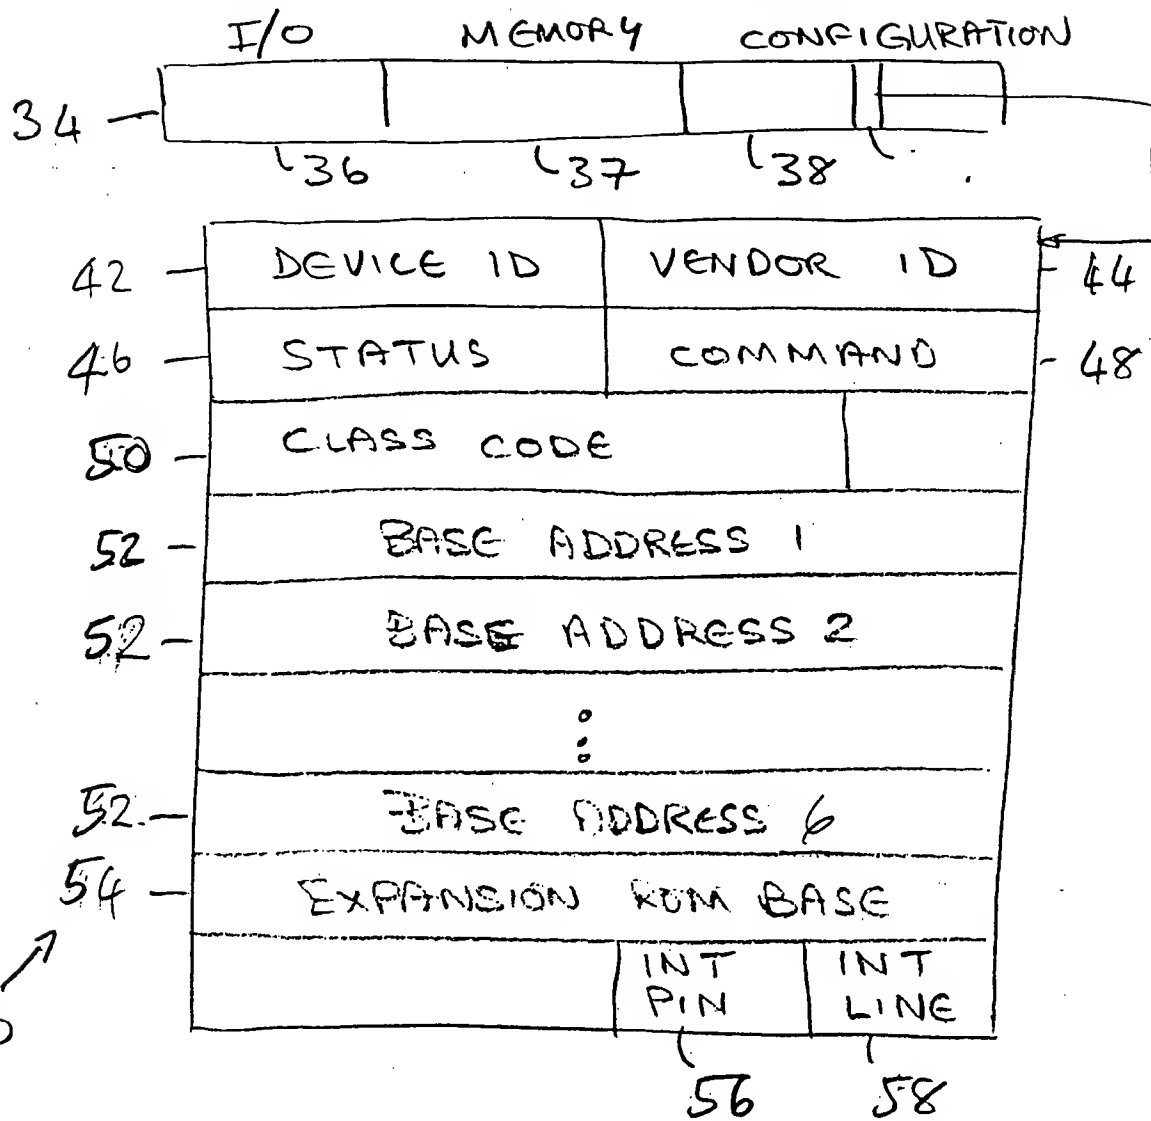 I/O MEMORY CONFIGURATION
34
36 37 38
42 DEVICE ID VENDOR ID 44
46 STATUS COMMAND 48
50 CLASS CODE
52 BASE ADDRESS 1
52 BASE ADDRESS 2
52 BASE ADDRESS 6
54 EXPANSION ROM BASE
INT INT
PIN LINE
56 58